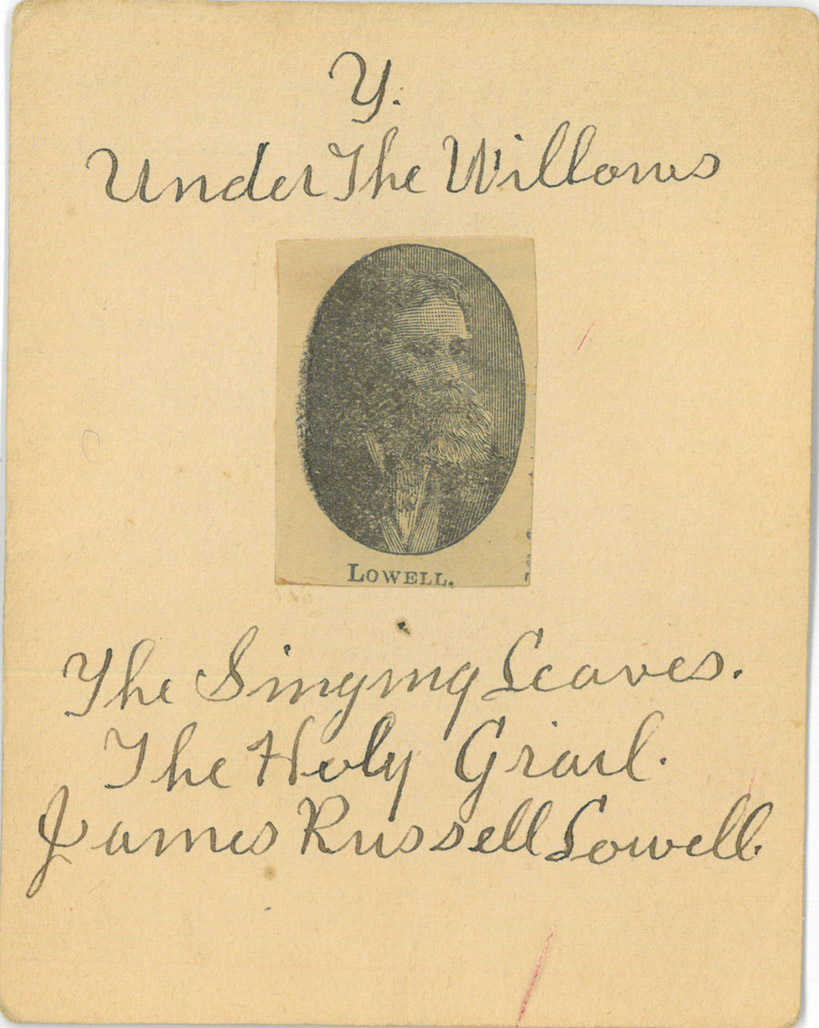 Y.
Under The Willows
LOWELL.
The Singing Leaves.
The Holy Grail.
James Russell Lowell.